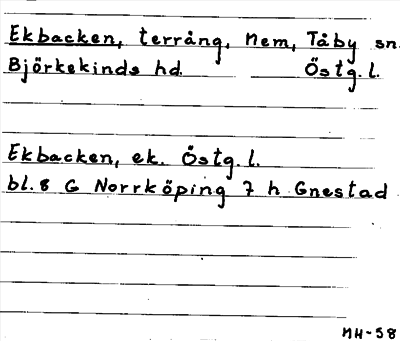 Ekbacken, terräng, Nem, Tåby sn.
Björkekinds hd. Östg. l.
Ekbacken, ek. Östg. l.
bl. 8 G Norrköping 7 h Gnestad
MH-58